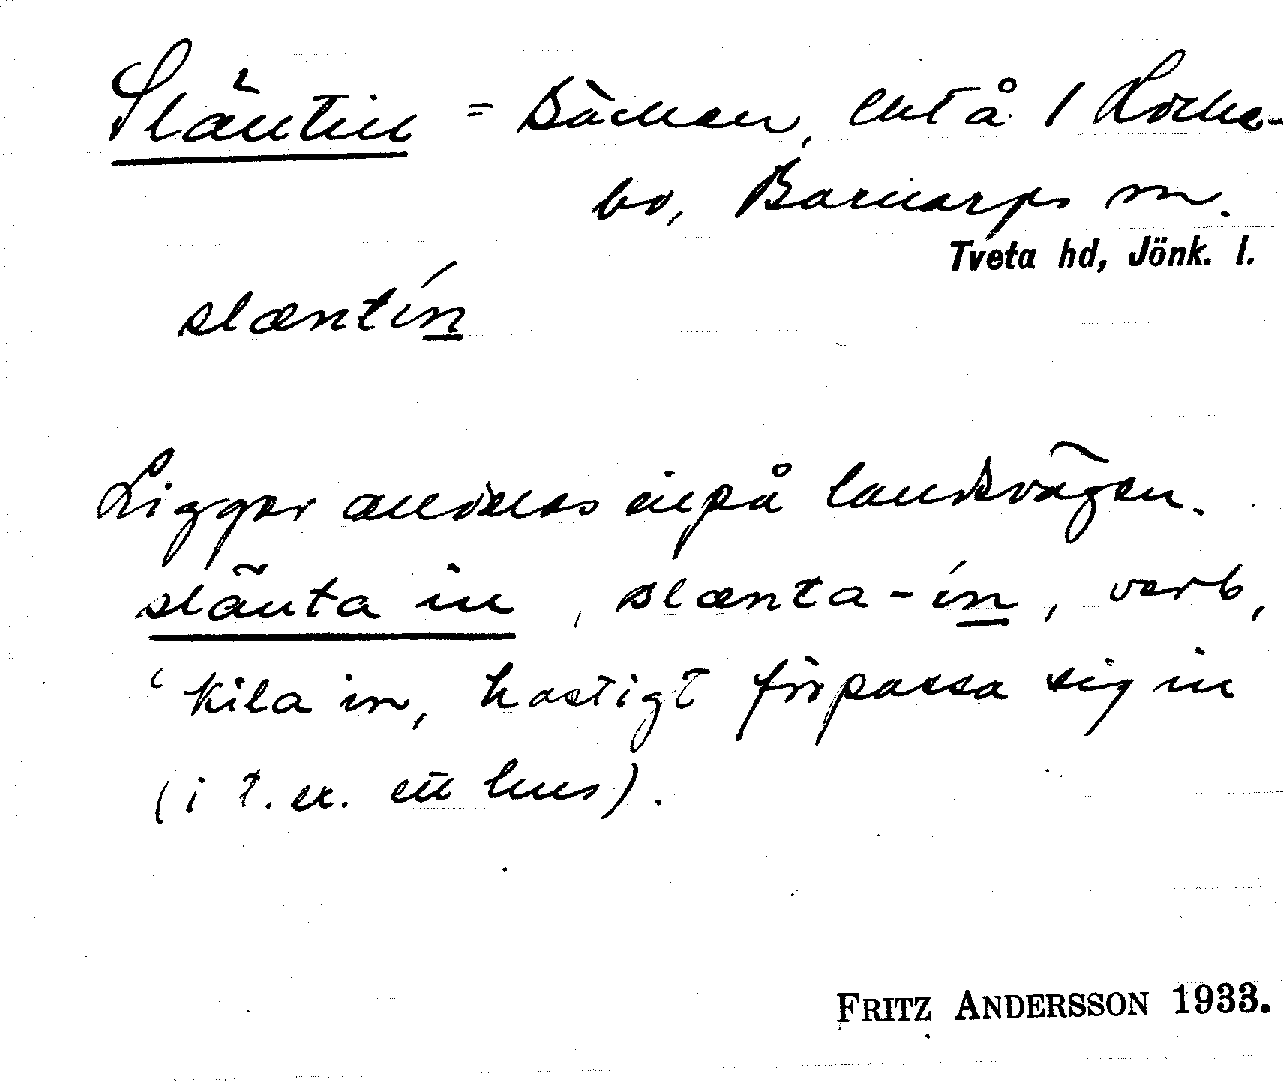 Släntin = Bäcken, lht å 1 Locke-
bo, Barnarps sn.
Tveta hd, Jönk. l.
slæntín
Ligger alldeles inpå landsvägen.
slänta in, slænta-ín, verb,
'kila in, hastigt förpassa sig in
(i t.ex. ett hus).
FRITZ ANDERSSON 1933.